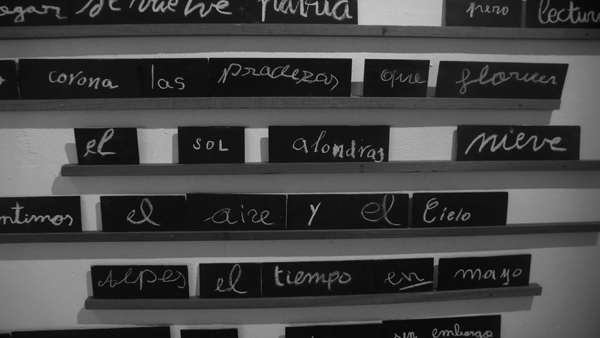 se vuelve
pero lectura
corona las praderas que florecen
el sol alondras nieve
ntimos el aire y el cielo
el tiempo en mayo
sin embargo